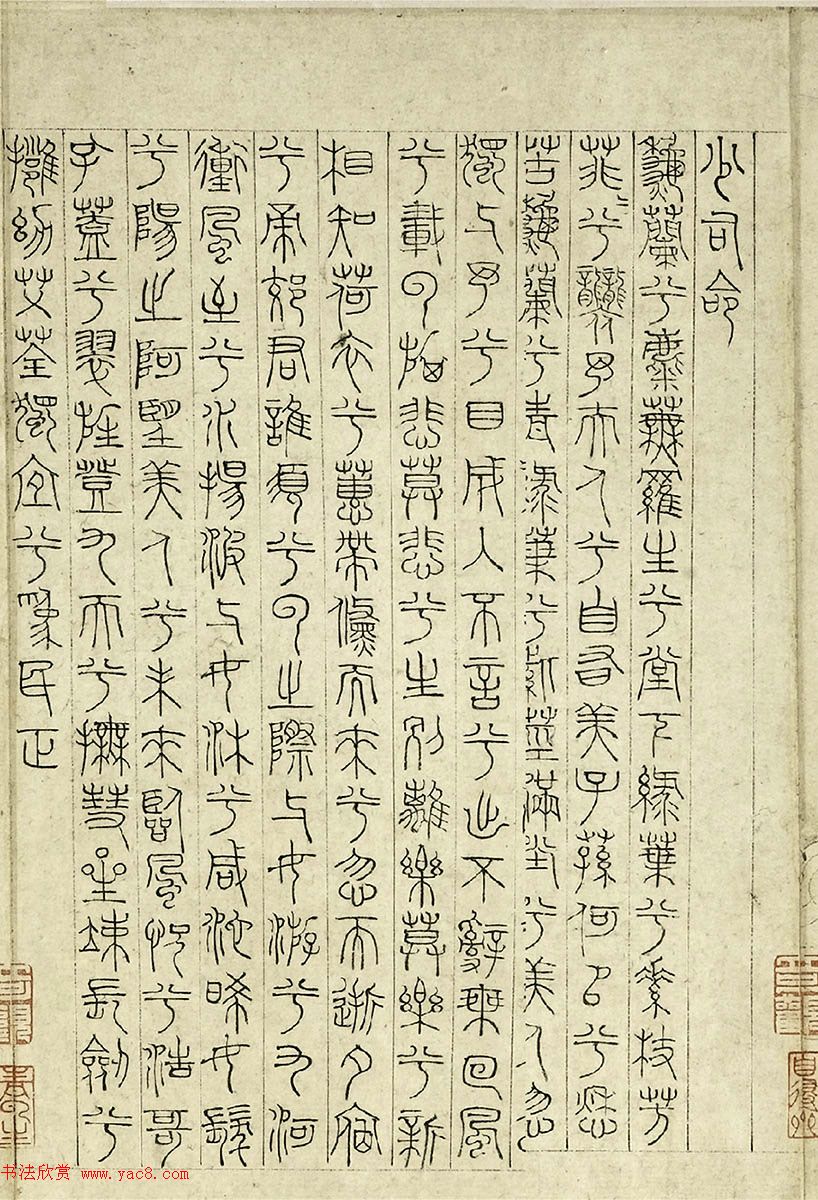 少司命
秋蘭兮麋蕪羅生兮堂下綠葉兮素枝芳
菲〻兮襲予夫人兮自有美子蓀何以兮愁
苦秋蘭兮青〻綠葉兮紫莖滿堂兮美人忽
獨与予兮目成入不言兮出不辭乘回風
兮載云旗悲莫悲兮生別離樂莫樂兮新
相知荷衣兮蕙帶儵而來兮忽而逝夕宿
兮帝郊君誰須兮云之際与女游兮九河
衝風至兮水揚波与女沐兮咸池晞女髮
兮陽之阿望美人兮未來臨風怳兮浩哥
孔蓋兮翠旌登九天兮撫彗星竦長劒兮
擁幼艾荃獨宜兮為民正
书法欣赏 www.yac8.com